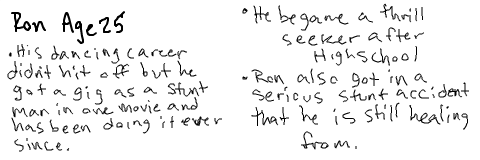 Ron Age 25
• His dancing career
didn't hit off but he
got a gig as a stunt
man in one movie and
has been doing it ever
since.
• He became a thrill
seeker after
Highschool
• Ron also got in a
serious stunt accident
that he is still healing
from.